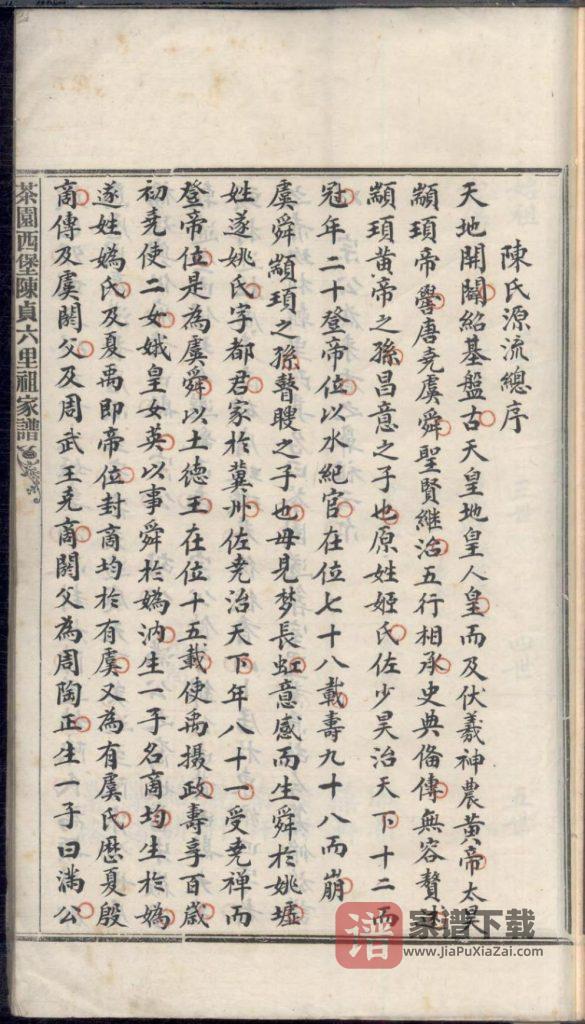 陳氏源流總序
天地開闢紹基盤古天皇地皇人皇而及伏羲神農黃帝太昊
顓頊帝嚳唐堯虞舜聖賢継治五行相承史典俻傳無容贅述
顓頊黃帝之孫昌意之子也原姓姬氏佐少昊治天下十二而
冠年二十登帝位以水紀官在位七十八載壽九十八而崩
虞舜顓頊之孫瞽瞍之子也母見梦長虹意感而生舜於姚墟
姓遂姚氏字都君家於冀州佐堯治天下年八十一受堯禅而
登帝位是為虞舜以土德王在位十五載使禹摄政壽享百歲
初堯使二女娥皇女英以事舜於媯汭生一子名商均生於媯
遂姓媯氏及夏禹即帝位封商均於有虞又為有虞氏歷夏殷
商傳及虞閼父及周武王克商閼父為周陶正生一子曰滿公
茶園西堡陳貞六里祖家譜
譜 家谱下载
www.JiaPuXiaZai.com